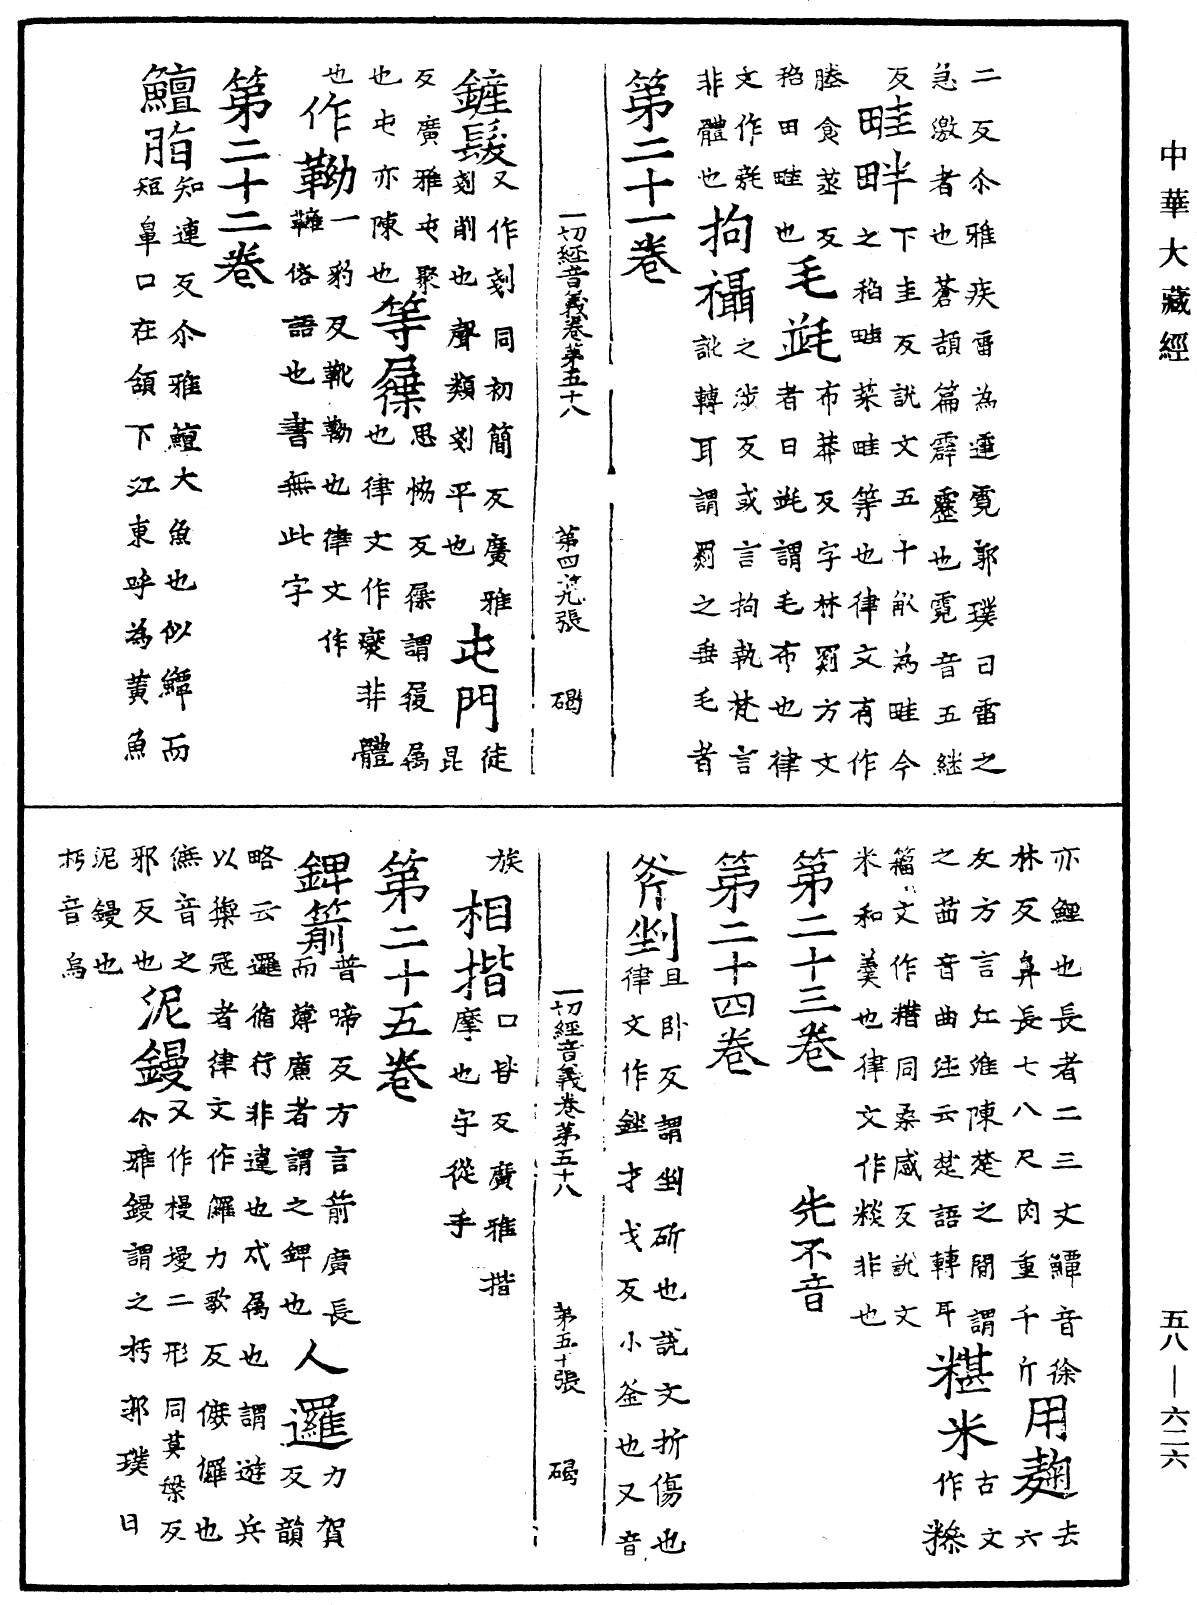 中華大藏經
二反尒雅疾雷為霆霓郭璞曰雷之
急激者也蒼頡篇霹靂也霓音五結
反畦畔下圭反說文五十畝為畦今
之稻畦菜畦等也律文有作
塍食蒸反
稻田畦也毛㲯布莽反字林罽方文
者曰㲯謂毛布也律
文作毾
非體也拘攝之涉反或言拘執梵言
訛轉耳謂罽之垂毛者
第二十一卷
一切經音義卷第五十八 第四九張 碣
鏟髮又作剗同初簡反廣雅
剗削也聲類剗平也屯門徒
昆
反廣雅屯聚
也屯亦陳也等屧思協反屧謂履屬
也律文作㷸非體
也作靿一豹反靴靿也律文作
䩺俗語也書無此字
第二十二卷
鱣脂知連反尒雅鱣大魚也似鱏而
短鼻口在頷下江東呼為黃魚
亦鯉也長者二三丈鱏音徐
林反鼻長七八尺肉重千斤用麴去
六
反方言江淮陳楚之間謂
之䒼音曲注云楚語轉耳糂米古文
作糝
籀文作糣同桑感反說文
米和羹也律文作䊏非也
第二十三卷 先不音
第二十四卷
斧剉且臥反謂剉斫也說文折傷也
律文作銼才戈反小釜也又音
一切經音義卷第五十八 第五十張 碣
族
相揩口皆反廣雅揩
摩也字從手
第二十五卷
錍箭普啼反方言箭廣長
而薄廉者謂之錍也人邏力賀
反韻
略云邏循行非違也亦屬也謂遊兵
以禦寇者律文作儸力歌反僂儸也
無音之
邪反也泥鏝又作槾墁二形同莫槃反
尒雅鏝謂之杇郭璞曰
泥鏝也
杇音烏
五八—六二六